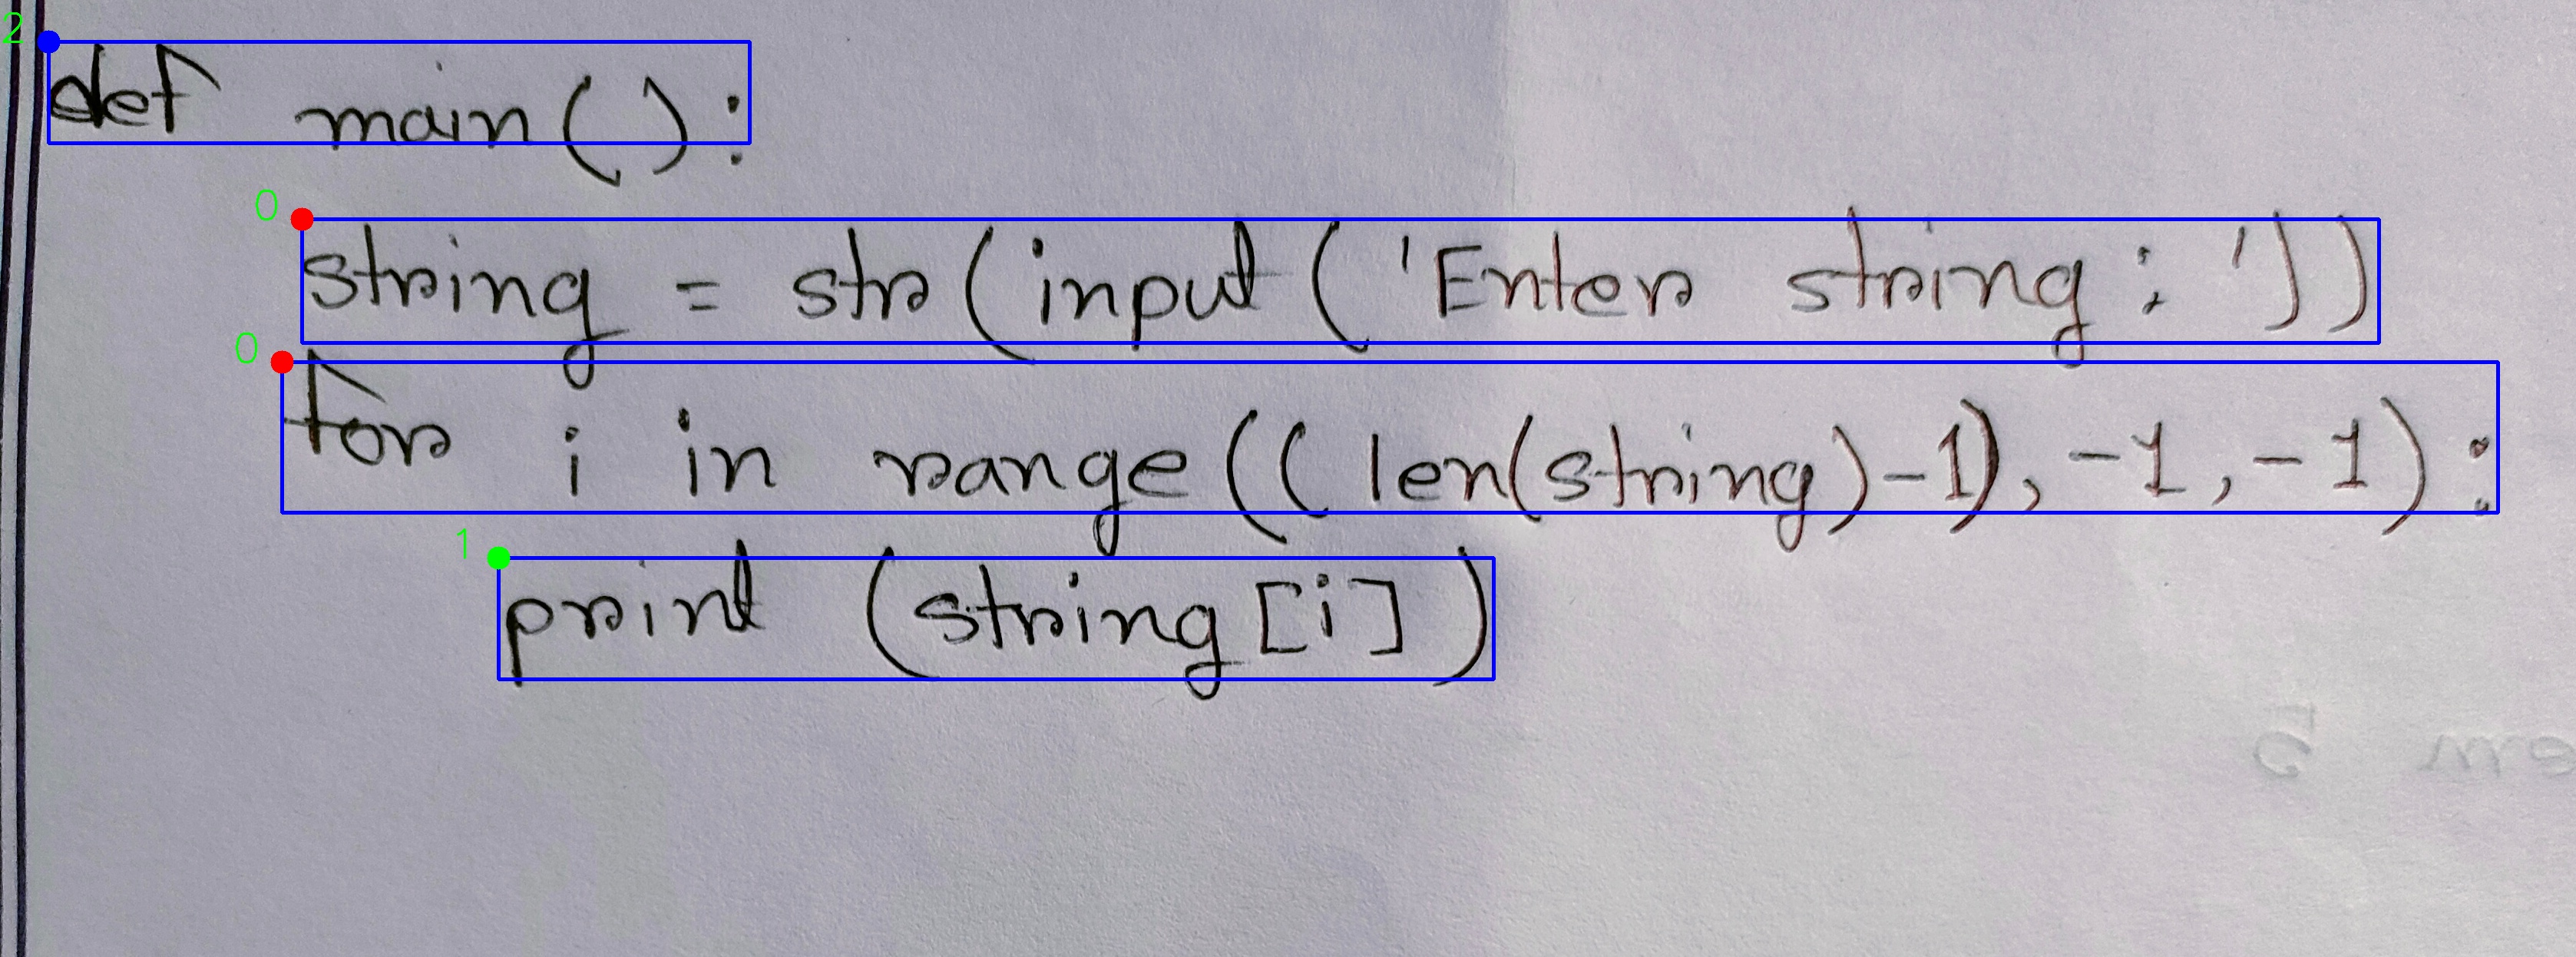 2
def main():
0
string = str(input('Enter string: '))
0
for i in range((len(string)-1), -1, -1):
1
print (string[i])